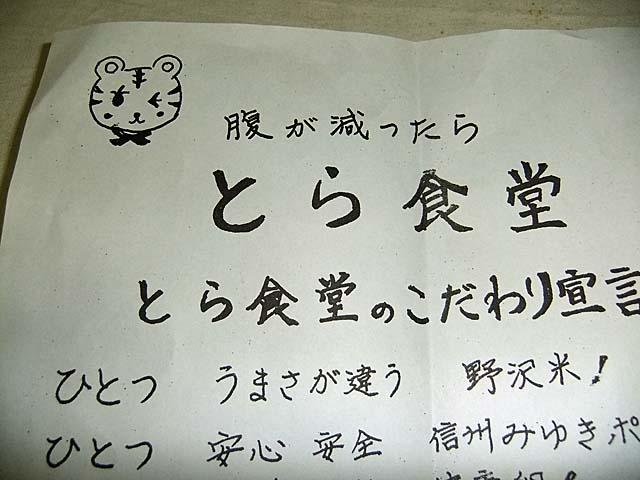 腹が減ったら
とら食堂
とら食堂のこだわり宣言
ひとつ うまさが違う 野沢米!
ひとつ 安心 安全 信州みゆきポ